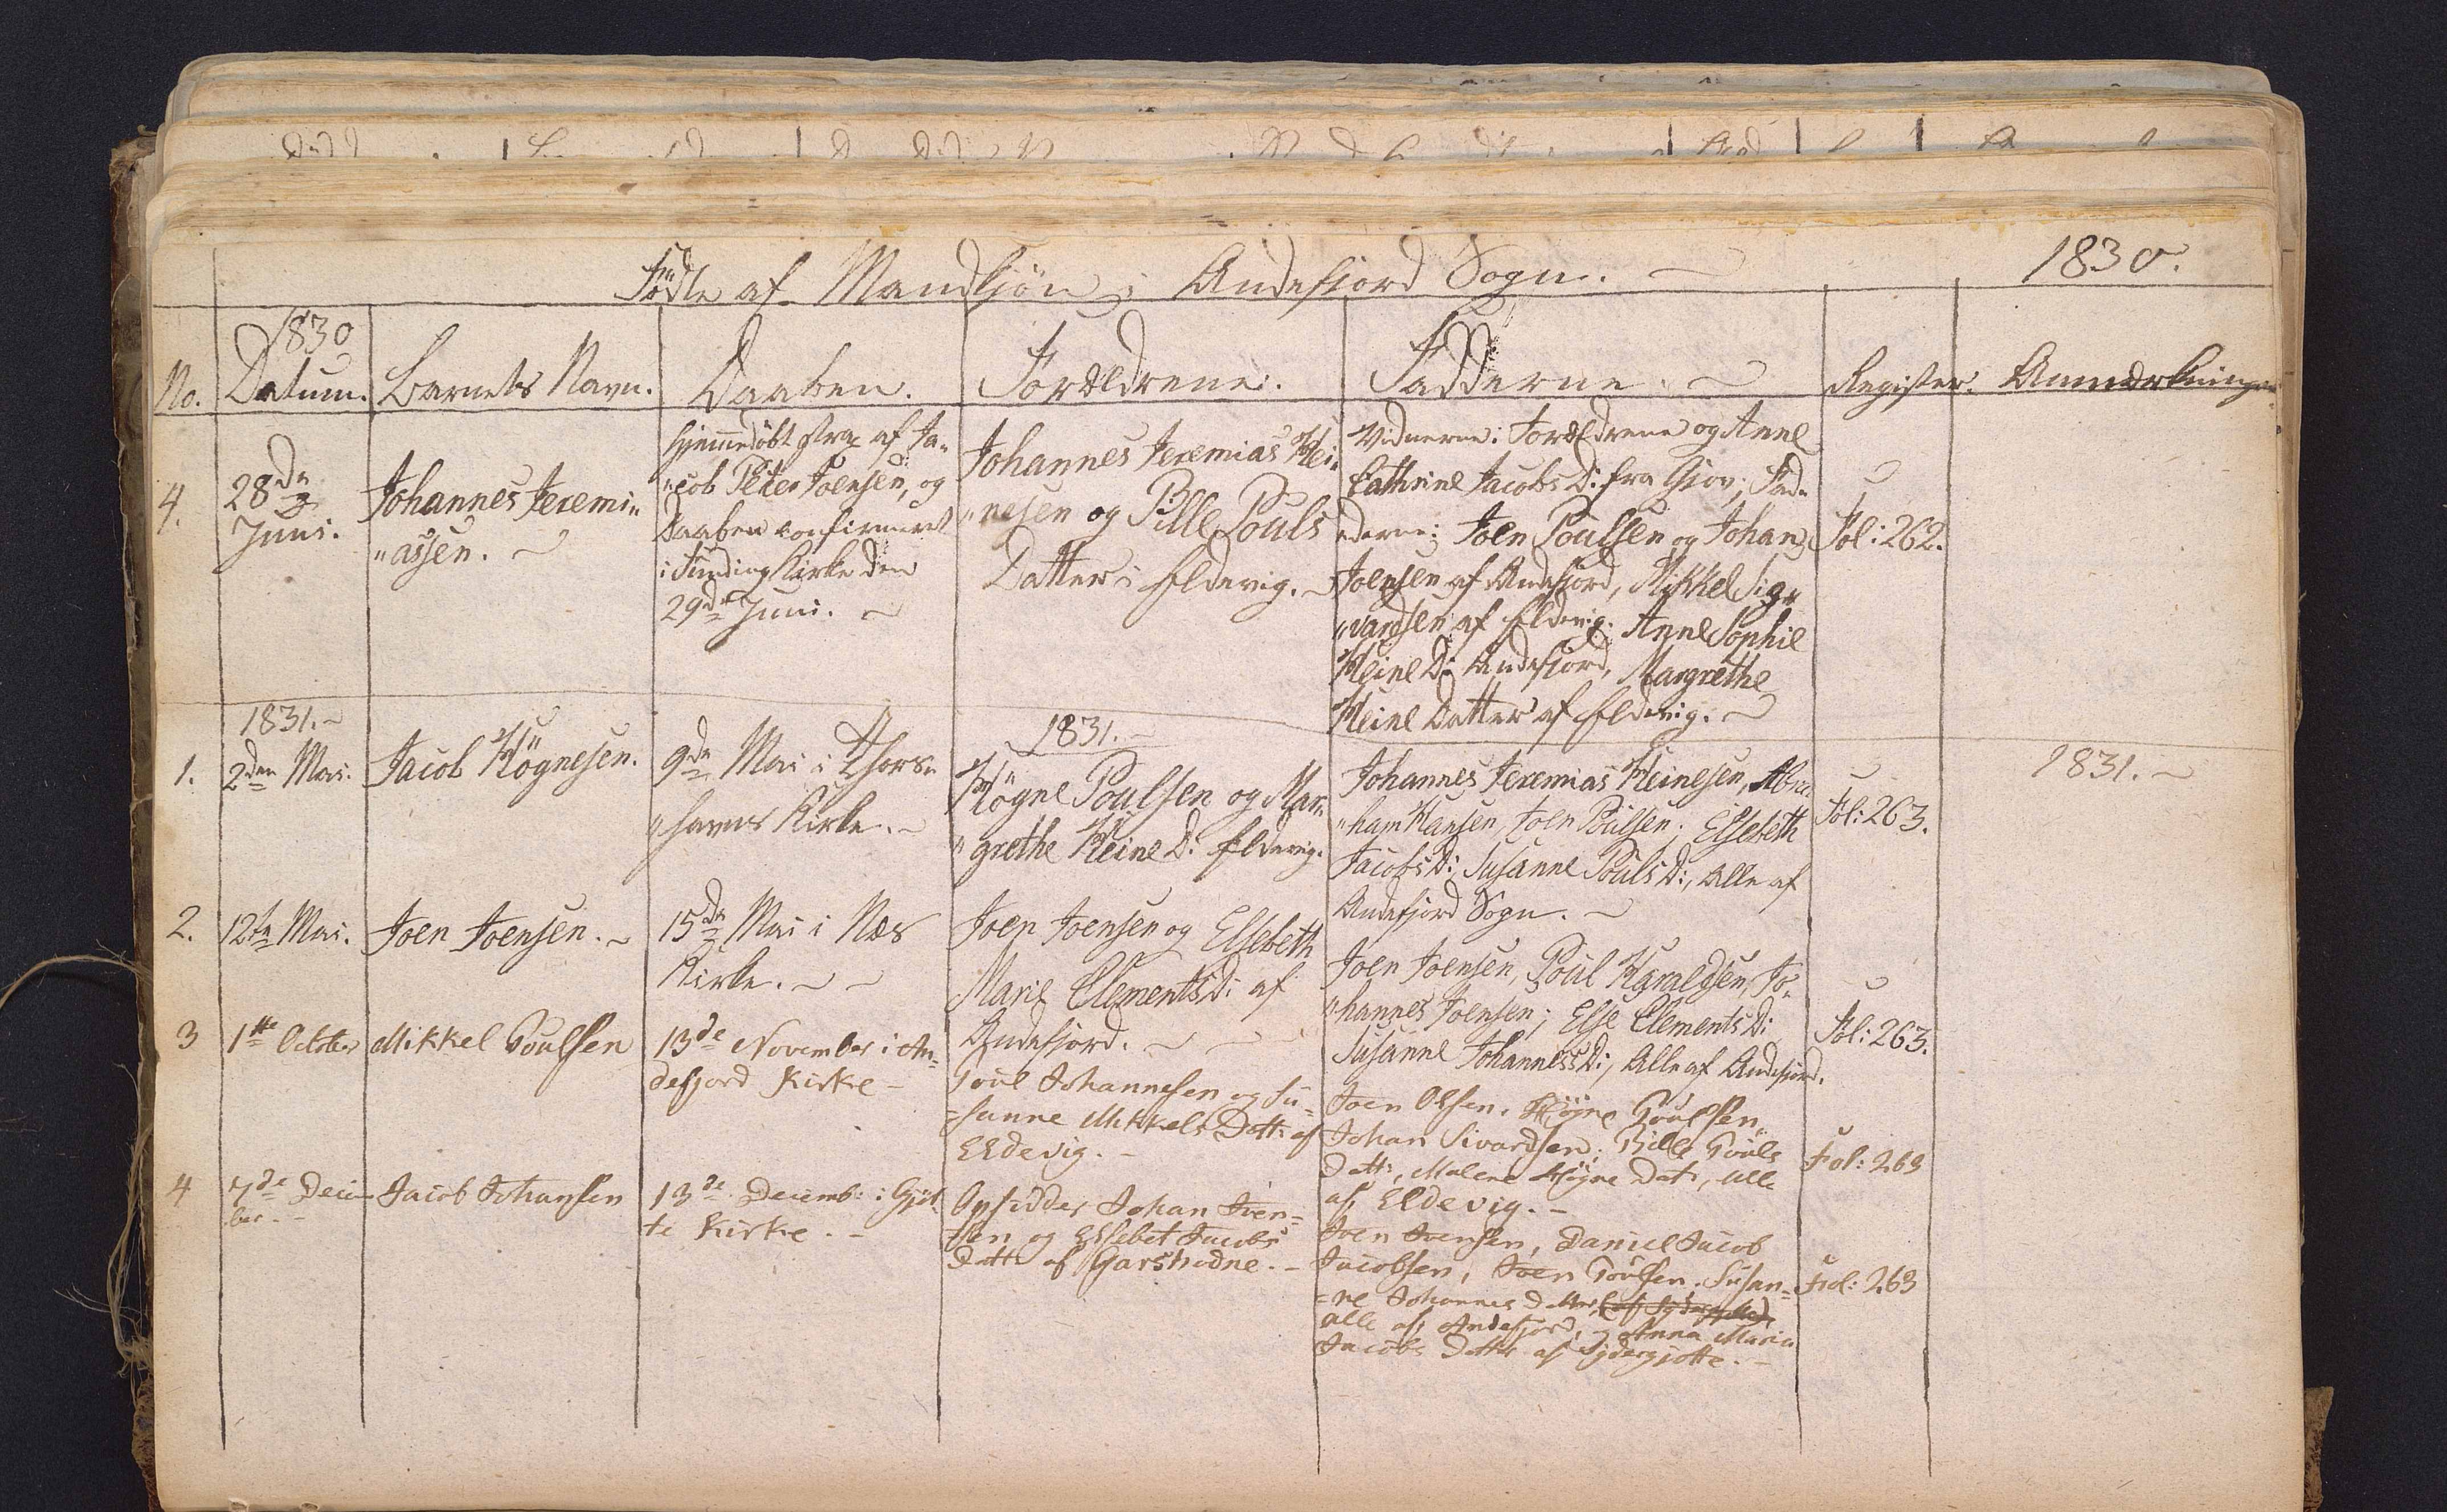 Fødte af Mandkjøn i Andefjord Sogn. 1830.
1830
No. Datum. Barnets Navn. Daaben. Forældrene. Fadderne. Register. Anmærkninger
4. 28de Juni. Johannes Jeremi„
„assen.
Hjemmedøbt strax af Ja„
„cob Peter Joensen, og
Daaben confirmeret
i Funding Kirke den
29de Juni.
Johannes Jeremias Hei„
„nesen og Pille Pouls
Datter i Eldevig.
Vidnerne: Forældrene og Anne
Cathrine Jacobs D: fra Gjov; Fad„
derne: Joen Poulsen og Johan
Joensen af Andefjord, Mikkel Sig„
„vardsen af Eldevig. Anne Sophie
Heine D: Andefjord, Margrethe
Heine Datter af Eldevig.
Fol: 262.
1831. 1831. 1831.
1. 2den Mai. Jacob Högnesen.
9de Mai i Thors„
„havns Kirke.
Högne Poulsen og Mar„
„grethe Heine D: Eldevig.
Johannes Jeremias Heinesen, Abra„
„ham Hansen, Joen Poulsen; Elsebeth
Jacobs D:, Susanne Pouls D:, Alle af
Andefjord Sogn.
Fol: 263.
2. 12te Mai. Joen Joensen.
15de Mai i Næs
Kirke.
Joen Joensen og Elsebeth
Marie Clements D: af
Andefjord.
Joen Joensen, Poul Haraldsen, Jo„
„hannes Joensen; Else Clements D:
Susanne Johannes D:, Alle af Andefjord.
Fol: 263.
3 1ste October Mikkel Poulsen
13de November i An„
defjord Kirke
Poul Johannesen og Su„
sanne Mikkels Datt: af
Eldevig.
Joen Olsen, Högne Poulsen,
Johan Sivardsen; Bille Pouls
Datt:, Malene Högne Dat:, alle
af Eldevig.
Fol: 263
4 7de Decem
ber. Jacob Johansen
13de Decemb: i Gjöt
te Kirke.
Opsidder Johan Joen=
sen og Elsebet Jacobs
Datt: af
Joen Joensen, Daniel Jacob
Jacobsen, Joen Poulsen. Susan=
=ne Johannes Datter
alle af Andefjord, Anna Maria
Jacobs Datter af Sydergjøtte.
Fol: 263